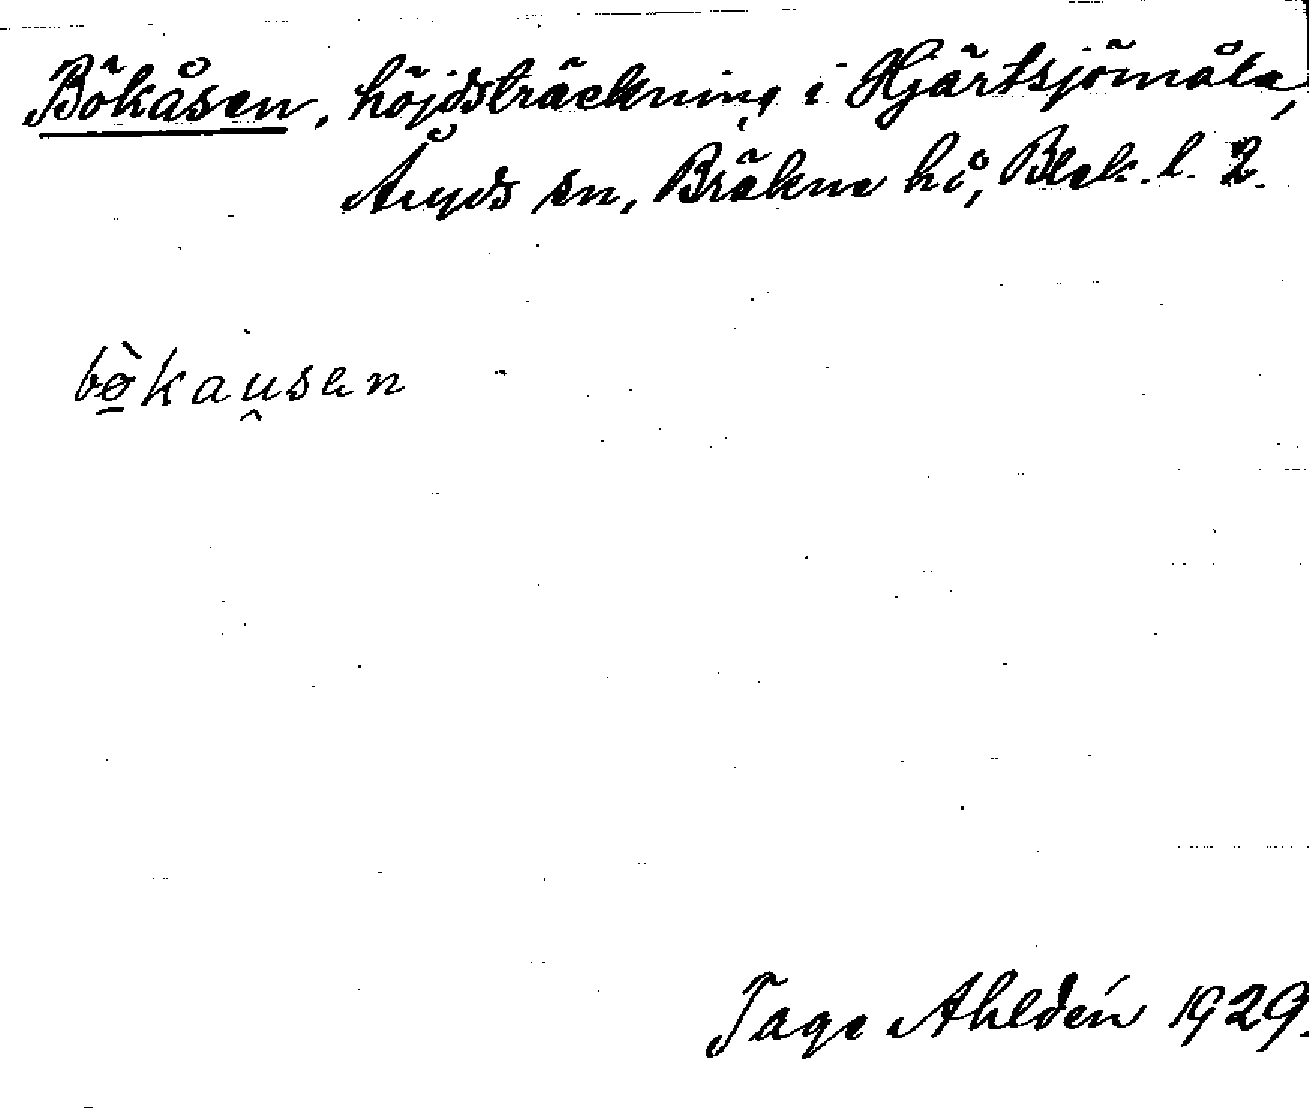 Bökåsen, höjdsträckning i Hjärtsjömåla,
Åryds sn, Bräkne hd, Blek. l. 2.
bø̀kau̯sen
Tage Ahldén 1929.